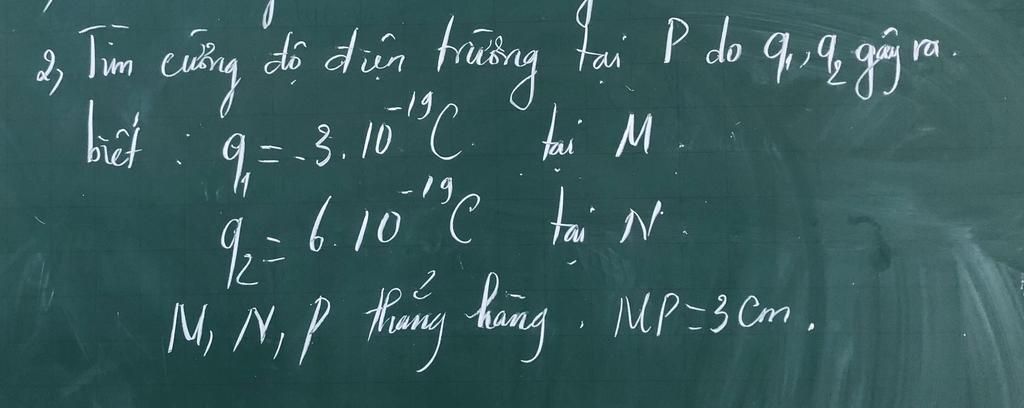 2, Tìm cường độ điện trường tại P do q₁, q₂ gây ra.
biết : q₁ = -3.10⁻¹⁹C tại M.
q₂ = 6.10⁻¹⁹C tại N.
M, N, P thẳng hàng. MP = 3cm.